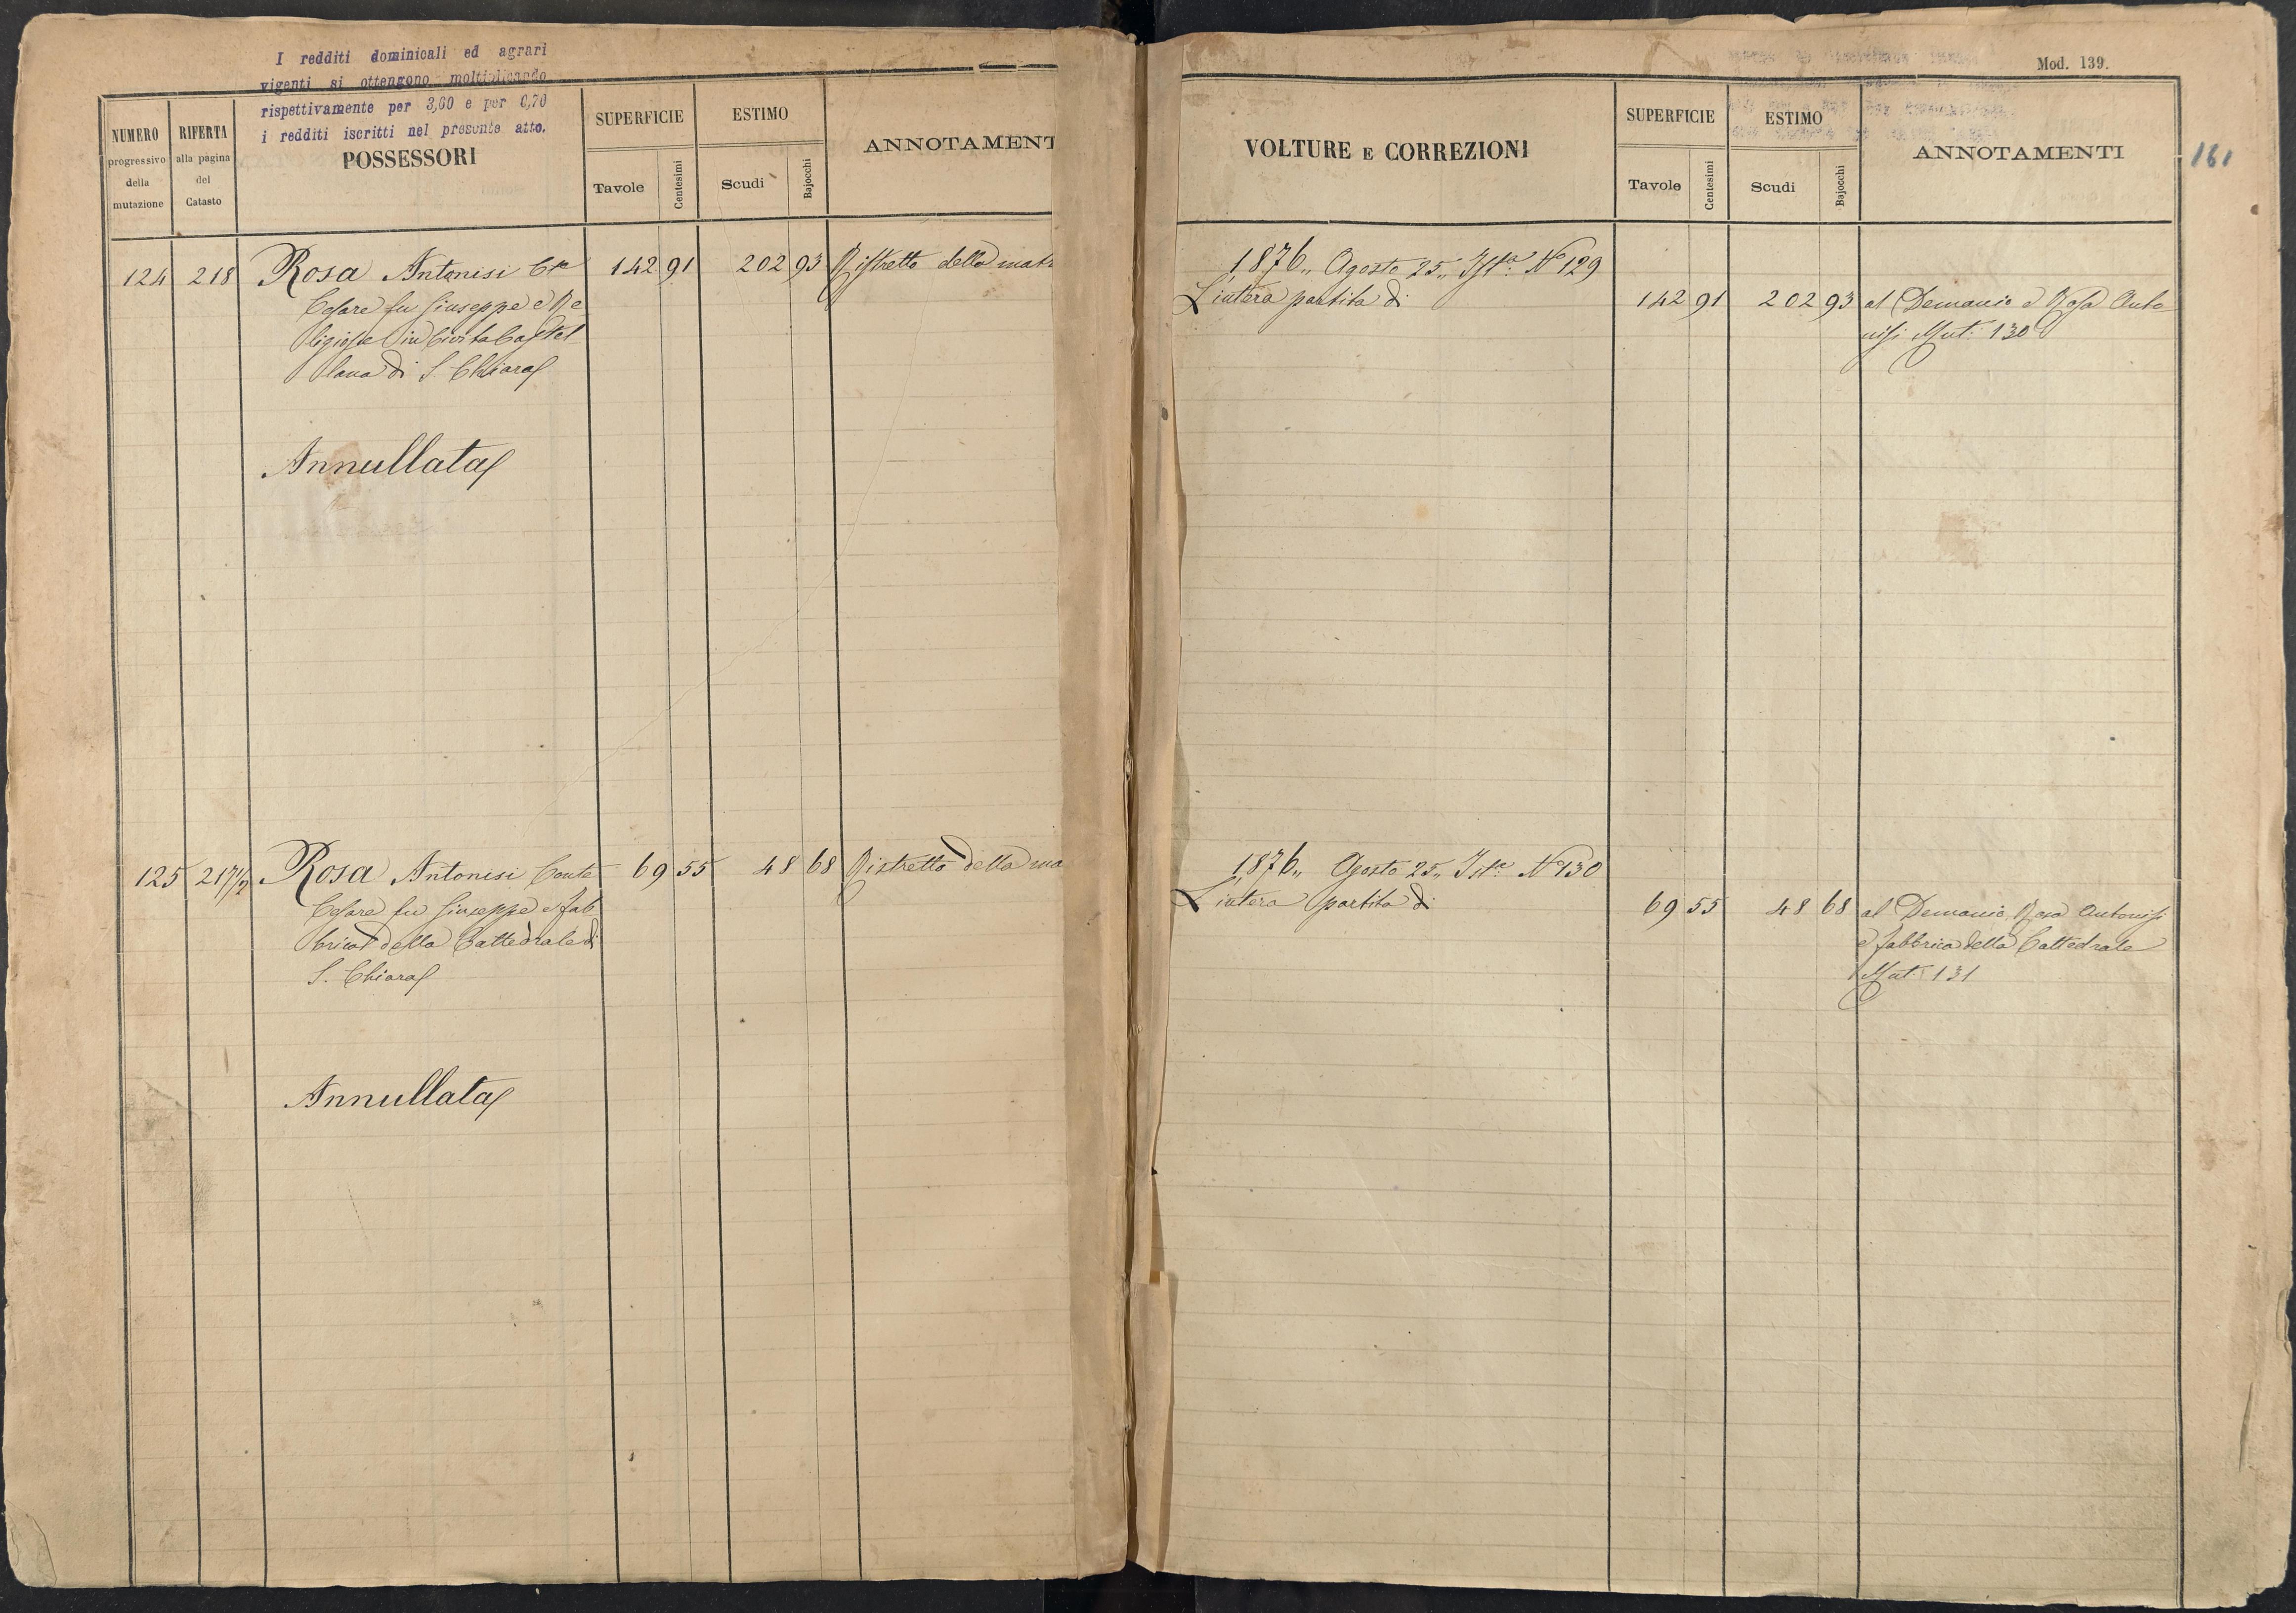 I redditi dominicali ed agrari
vigenti si ottengono moltiplicando
rispettivamente per 3,60 e per 0,70
i redditi iscritti nel presente atto.
NUMERO
progressivo
della
mutazione
RIFERTA
alla pagina
del
Catasto
POSSESSORI
SUPERFICIE
Tavole
Centesimi
ESTIMO
Scudi
Bajocchi
ANNOTAMENT
124 218 Rosa Antonisi Cte 142 91 202 93 Ristretto della mat
Cesare fu Giuseppe e Re
ligiose in Civita Castel
lana di S. Chiara
Annullata
125 217 1/2 Rosa Antonisi Conte 69 55 48 68 Ristretto della ma
Cesare fu Giuseppe e fab
brica della Cattedrale di
S. Chiara
Annullata
Mod. 139.
VOLTURE E CORREZIONI
SUPERFICIE
Tavole
Centesimi
ESTIMO
Scudi
Bajocchi
ANNOTAMENTI
161
1876,, Agosto 25,, Ista. No 129
L'intera partita di 142 91 202 93 al Demanio e Rosa Anto
nisi Mut. 130
1876,, Agosto 25,, Ista. No 130
L'intera partita di 69 55 48 68 al Demanio, Rosa Antonisi
e fabbrica della Cattedrale
Mut. 131